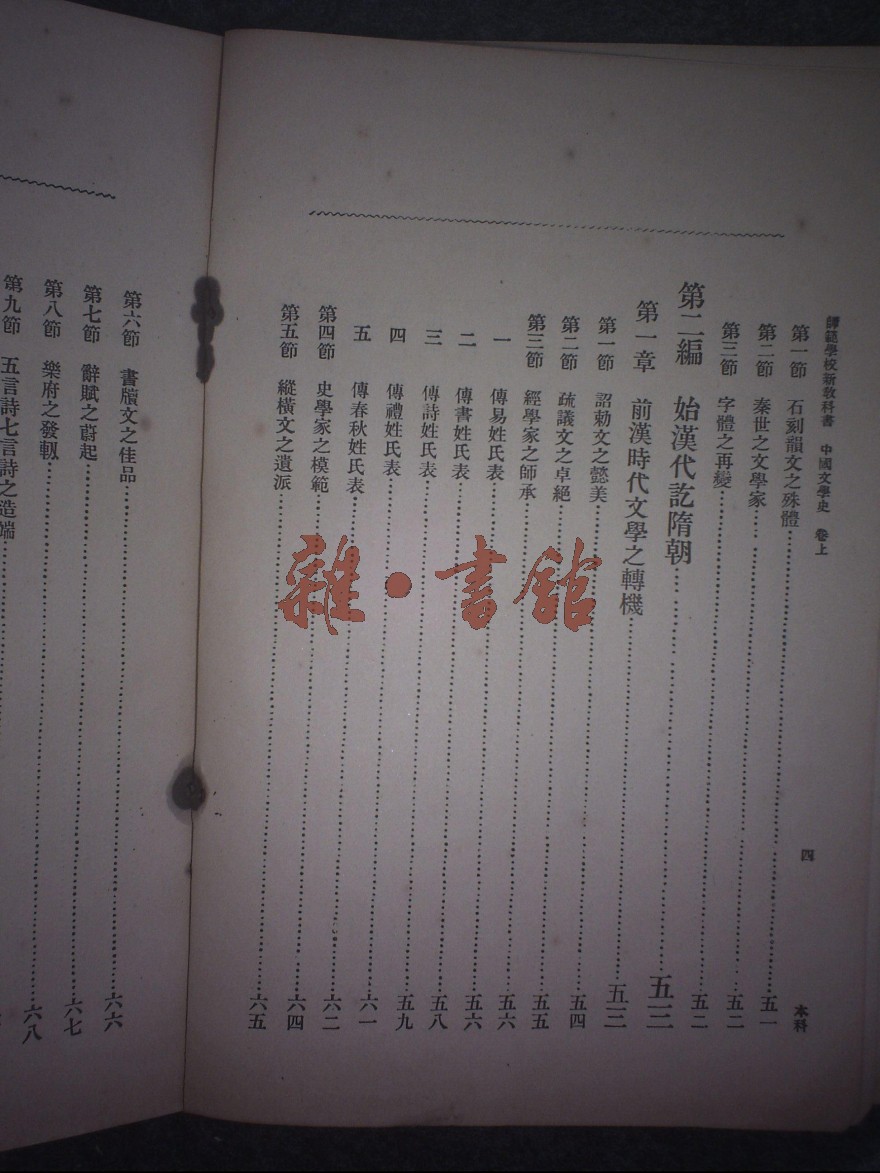 師範學校新教科書 中國文學史 卷上 四 本科
第一節 石刻韻文之殊體 五一
第二節 秦世之文學家 五二
第三節 字體之再變 五二
第二編 始漢代訖隋朝 五三
第一章 前漢時代文學之轉機 五三
第一節 詔勅文之懿美 五四
第二節 疏議文之卓絕 五五
第三節 經學家之師承 五六
一 傳易姓氏表 五六
二 傳書姓氏表 五八
三 傳詩姓氏表 五九
四 傳禮姓氏表 六一
五 傳春秋姓氏表 六二
第四節 史學家之模範 六四
第五節 縱橫文之遺派 六五
第六節 書牘文之佳品 六六
第七節 辭賦之蔚起 六七
第八節 樂府之發軔 六八
第九節 五言詩七言詩之造端
雜·書館